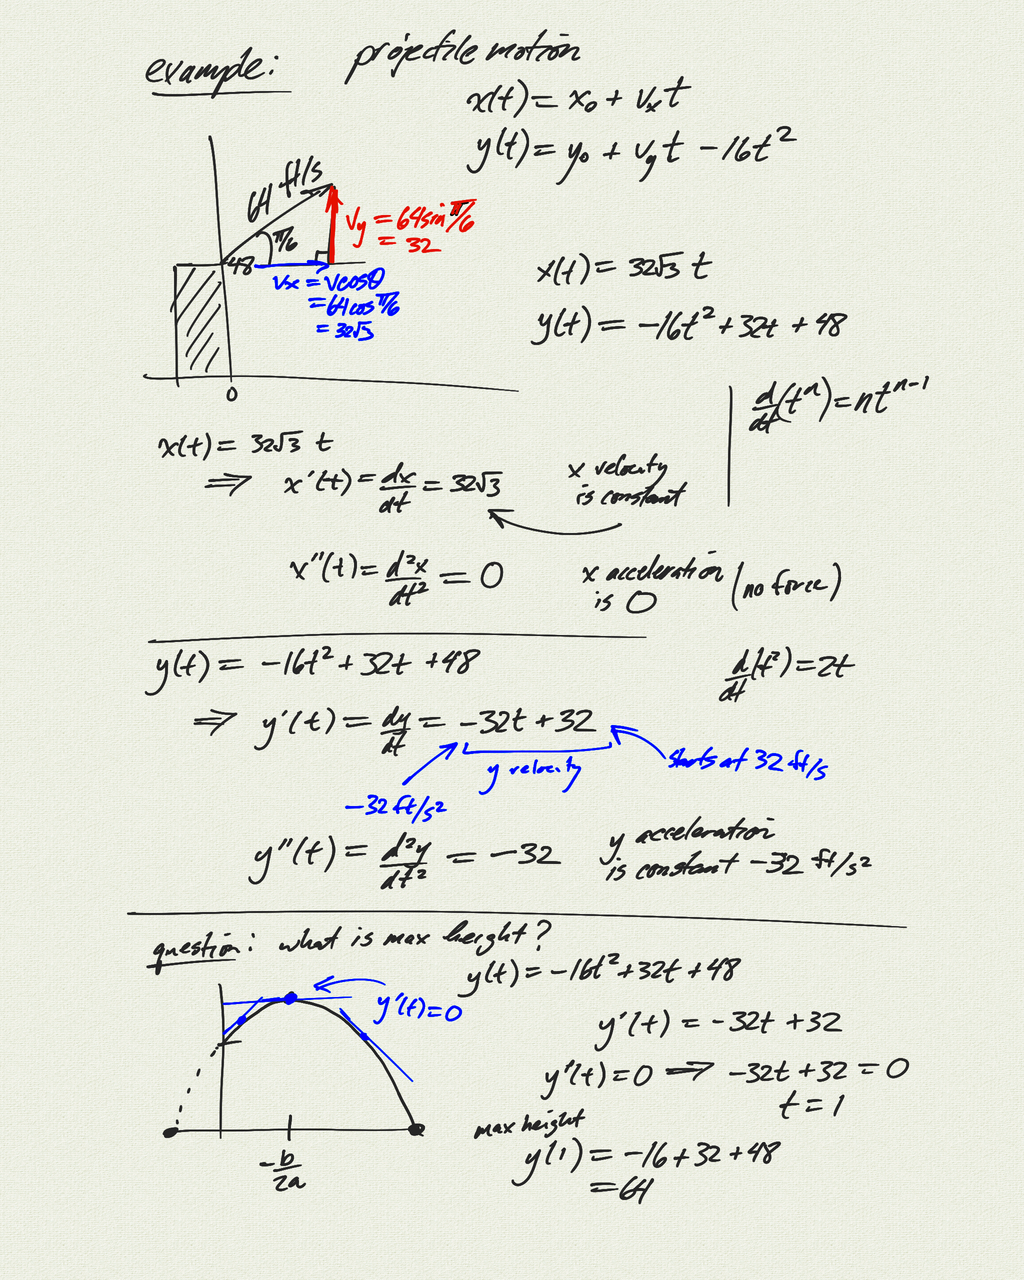 example: projectile motion
x(t) = x₀ + vₓt
y(t) = y₀ + v_y t − 16t²
64 ft/s
π/6
48
v_y = 64 sin π/6
= 32
vx = v cos θ
= 64 cos π/6
= 32√3
0
x(t) = 32√3 t
y(t) = −16t² + 32t + 48
d/dt (tⁿ) = n tⁿ⁻¹
x(t) = 32√3 t
⇒ x′(t) = dx/dt = 32√3
x velocity
is constant
x″(t) = d²x/dt² = 0
x acceleration
is 0
(no force)
y(t) = −16t² + 32t + 48
d/dt (t²) = 2t
⇒ y′(t) = dy/dt = −32t + 32
y velocity
starts at 32 ft/s
−32 ft/s²
y″(t) = d²y/dt² = −32
y acceleration
is constant −32 ft/s²
question: what is max height?
y(t) = −16t² + 32t + 48
y′(t) = 0
−b/2a
y′(t) = −32t + 32
y′(t) = 0 ⇒ −32t + 32 = 0
t = 1
max height
y(1) = −16 + 32 + 48
= 64